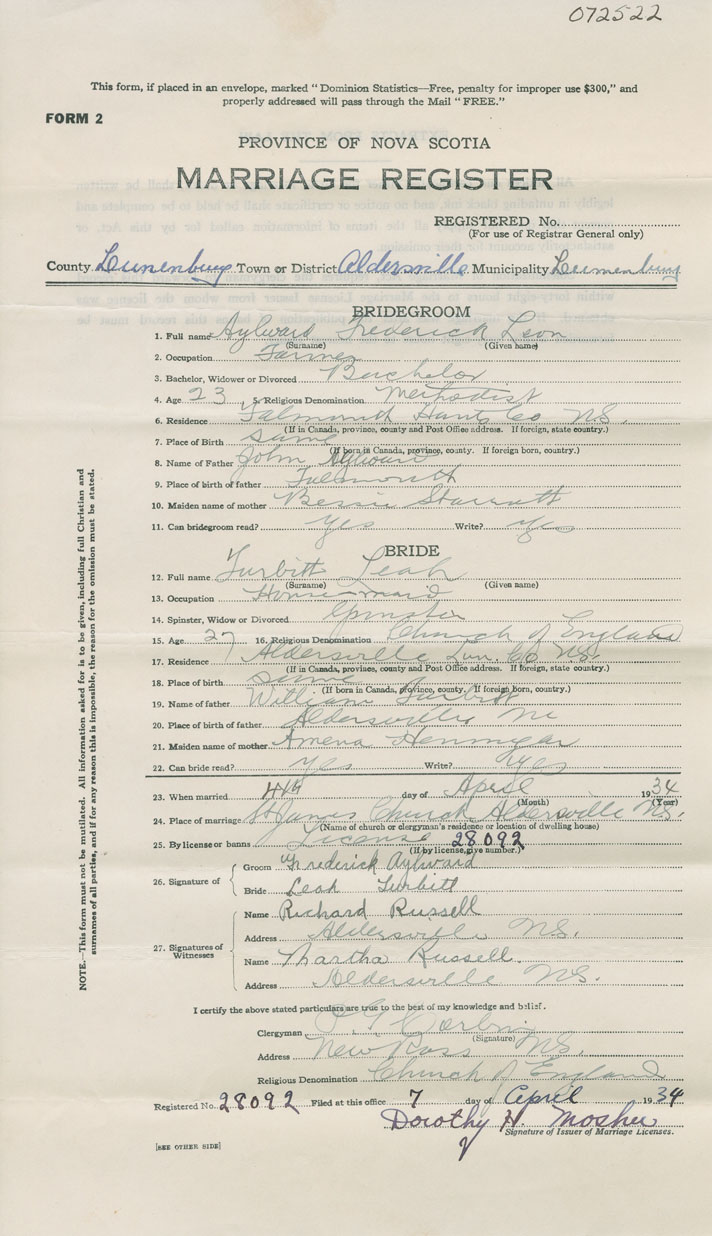 072522
This form, if placed in an envelope, marked "Dominion Statistics—Free, penalty for improper use $300," and
properly addressed will pass through the Mail "FREE."
FORM 2
PROVINCE OF NOVA SCOTIA
MARRIAGE REGISTER
REGISTERED No.
(For use of Registrar General only)
County Lunenburg Town or District Aldersville Municipality Lunenburg
BRIDEGROOM
1. Full name Aylward Frederick Leon
(Surname) (Given name)
2. Occupation Farmer
3. Bachelor, Widower or Divorced Bachelor
4. Age 23 5. Religious Denomination Methodist
6. Residence Falmouth Hants Co N.S.
(If in Canada, province, county and Post Office address. If foreign, state country.)
7. Place of Birth same
(If born in Canada, province, county. If foreign born, country.)
8. Name of Father John Aylward
9. Place of birth of father Falmouth
10. Maiden name of mother Bessie Starratt
11. Can bridegroom read? yes Write? yes
BRIDE
12. Full name Turbitt Leah
(Surname) (Given name)
13. Occupation Housemaid
14. Spinster, Widow or Divorced Spinster
15. Age 27 16. Religious Denomination Church of England
17. Residence Aldersville Lun. Co N.S.
(If in Canada, province, county and Post Office address. If foreign, state country.)
18. Place of birth same
(If born in Canada, province, county. If foreign born, country.)
19. Name of father William Turbitt
20. Place of birth of father Aldersville
21. Maiden name of mother Amena Hennigar
22. Can bride read? yes Write? yes
23. When married 4th day of April 1934
(Month) (Year)
24. Place of marriage St James Church Aldersville N.S.
(Name of church or clergyman's residence or location of dwelling house)
25. By license or banns License 28092
(If by license, give number.)
26. Signature of Groom Frederick Aylward
Bride Leah Turbitt
27. Signatures of Witnesses
Name Richard Russell
Address Aldersville N.S.
Name Martha Russell.
Address Aldersville N.S.
I certify the above stated particulars are true to the best of my knowledge and belief.
Clergyman
(Signature)
Address New Ross N.S.
Religious Denomination Church of England
Registered No. 28092 Filed at this office 7 day of April 1934
Dorothy H. Mosher
Signature of Issuer of Marriage Licenses.
[SEE OTHER SIDE]
NOTE.—This form must not be mutilated. All information asked for is to be given, including full Christian and
surnames of all parties, and if for any reason this is impossible, the reason for the omission must be stated.